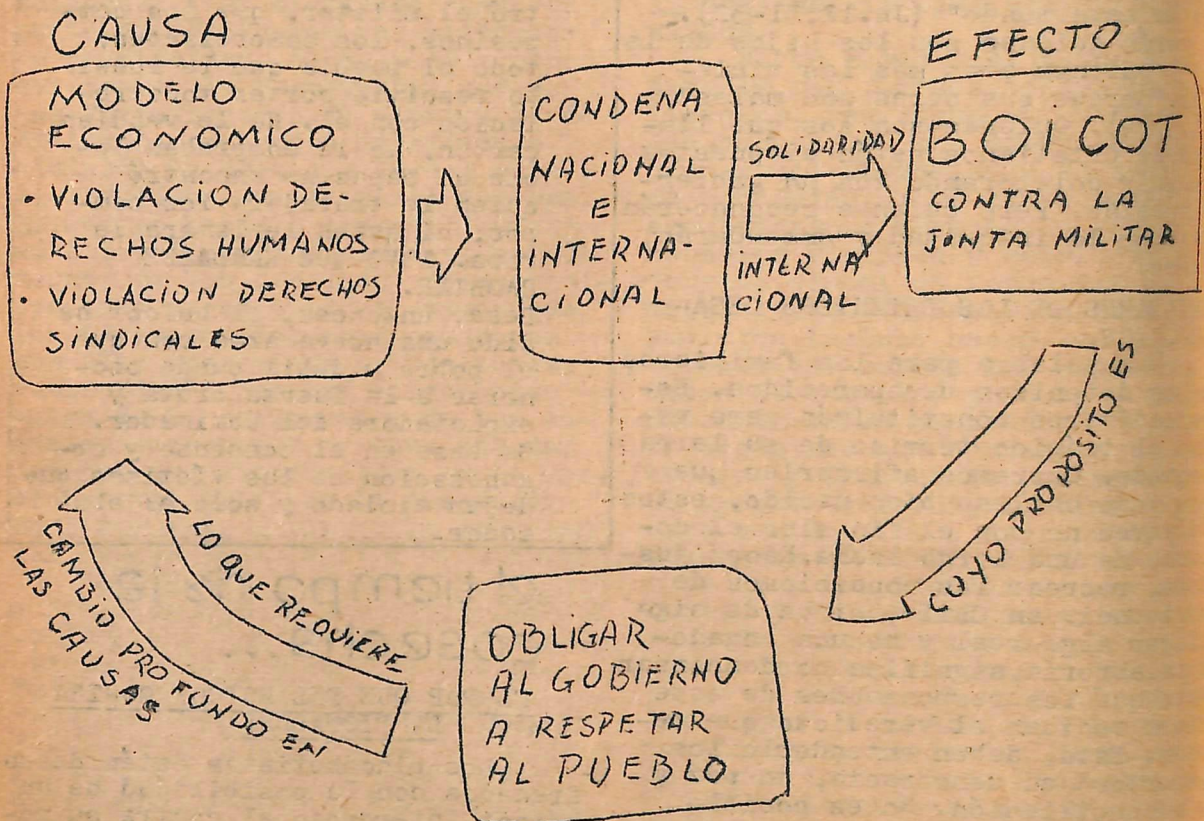 CAUSA
MODELO
ECONOMICO
• VIOLACION DE-
RECHOS HUMANOS
• VIOLACION DERECHOS
SINDICALES
CONDENA
NACIONAL
E
INTERNA-
CIONAL
SOLIDARIDAD
INTERNA
CIONAL
EFECTO
BOICOT
CONTRA LA
JUNTA MILITAR
CUYO PROPOSITO ES
OBLIGAR
AL GOBIERNO
A RESPETAR
AL PUEBLO
LO QUE REQUIERE
CAMBIO PROFUNDO EN
LAS CAUSAS